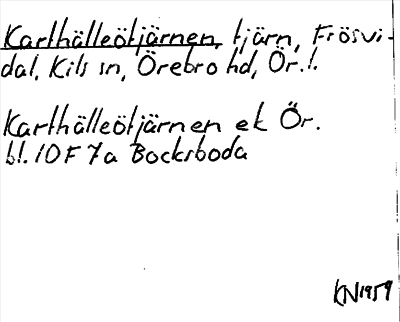 Karthälleötjärnen, tjärn, Frösvi-
dal, Kils sn, Örebro hd, Ör. l.
Karthälleötjärnen ek Ör.
bl. 10F 7a Bocksboda
KN 1959